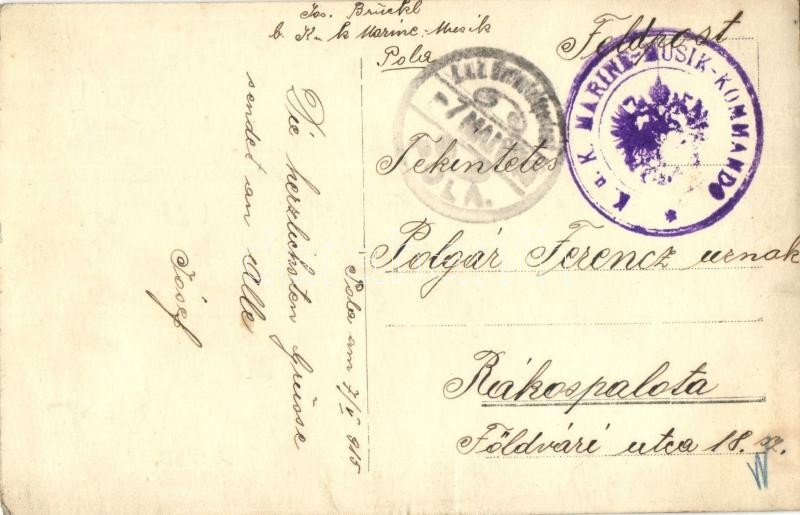 Jos. Brückl
b. K. u. k. Marine-Musik
Pola
Feldpost
K. u. K. MARINE-MUSIK-KOMMANDO
7 MAI
POLA.
Tekintetes
Polgár Ferencz urnak
Rákospalota
Földvári utca 18. sz.
Pola am 7/V 915
Die herzlichsten Grüsse
sendet an Alle
Jósef